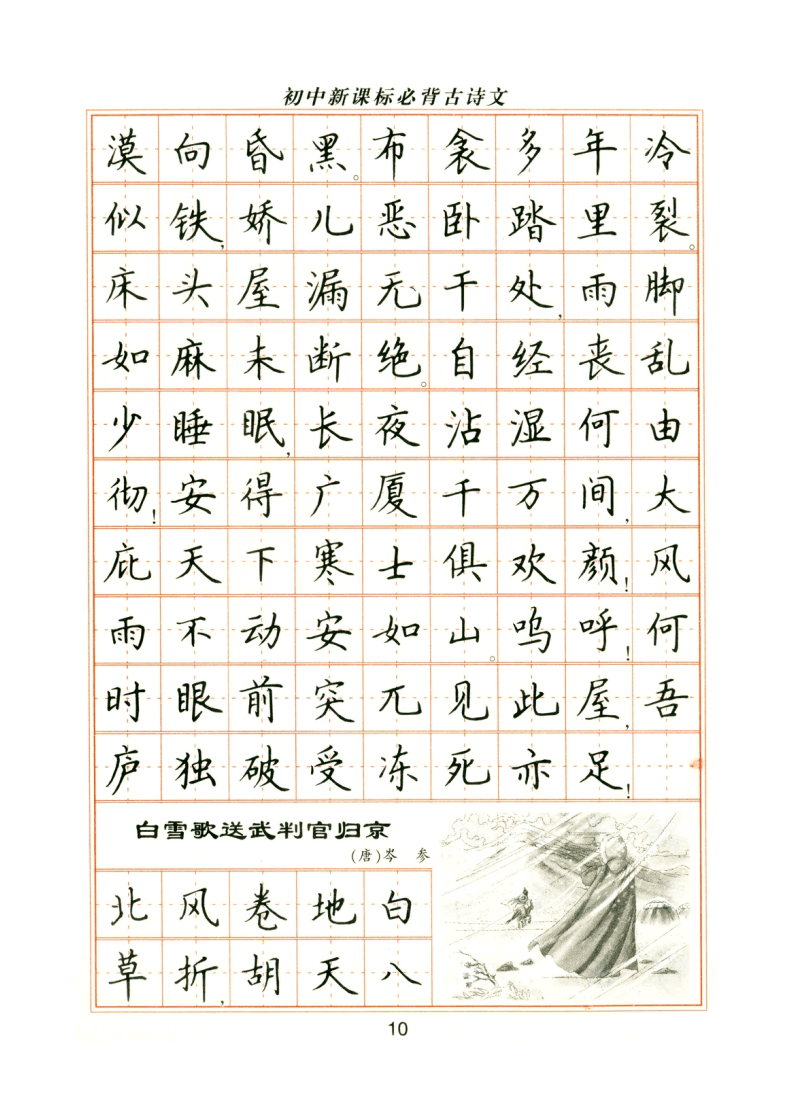 初中新课标必背古诗文
漠向昏黑。布衾多年冷
似铁,娇儿恶卧踏里裂。
床头屋漏无干处,雨脚
如麻未断绝。自经丧乱
少睡眠,长夜沾湿何由
彻!安得广厦千万间,大
庇天下寒士俱欢颜!风
雨不动安如山。呜呼!何
时眼前突兀见此屋,吾
庐独破受冻死亦足!
白雪歌送武判官归京
(唐)岑 参
北风卷地白
草折,胡天八
10